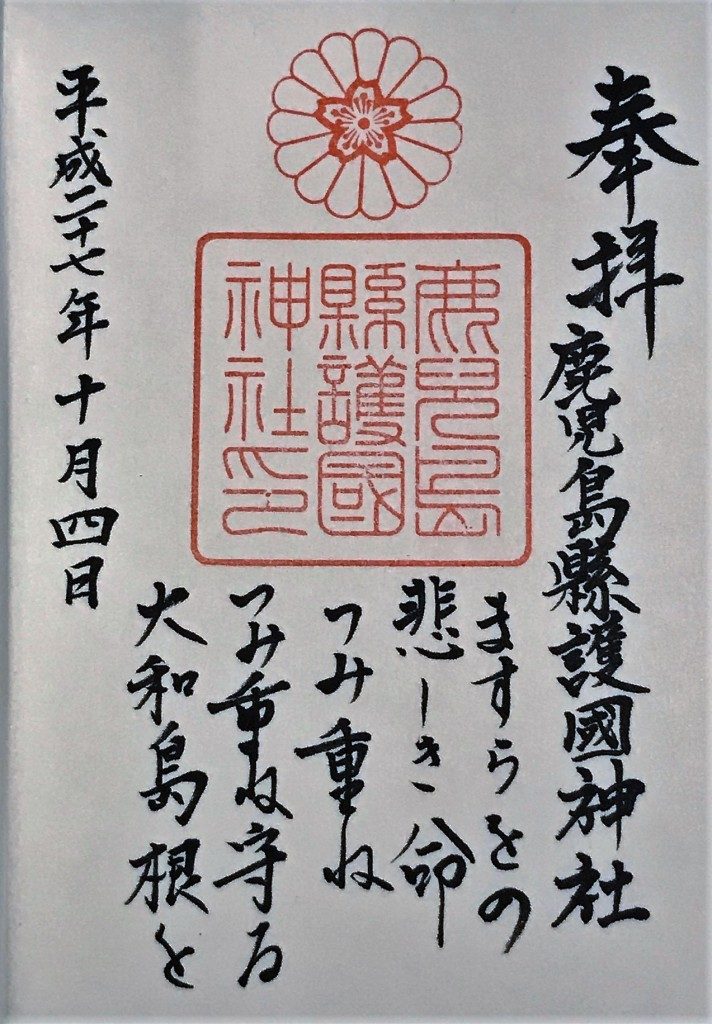 奉拝
鹿児島縣護國神社
鹿児島
縣護國
神社印
ますらをの
悲しき命
つみ重ね
つみ重ね守る
大和島根を
平成二十七年十月四日